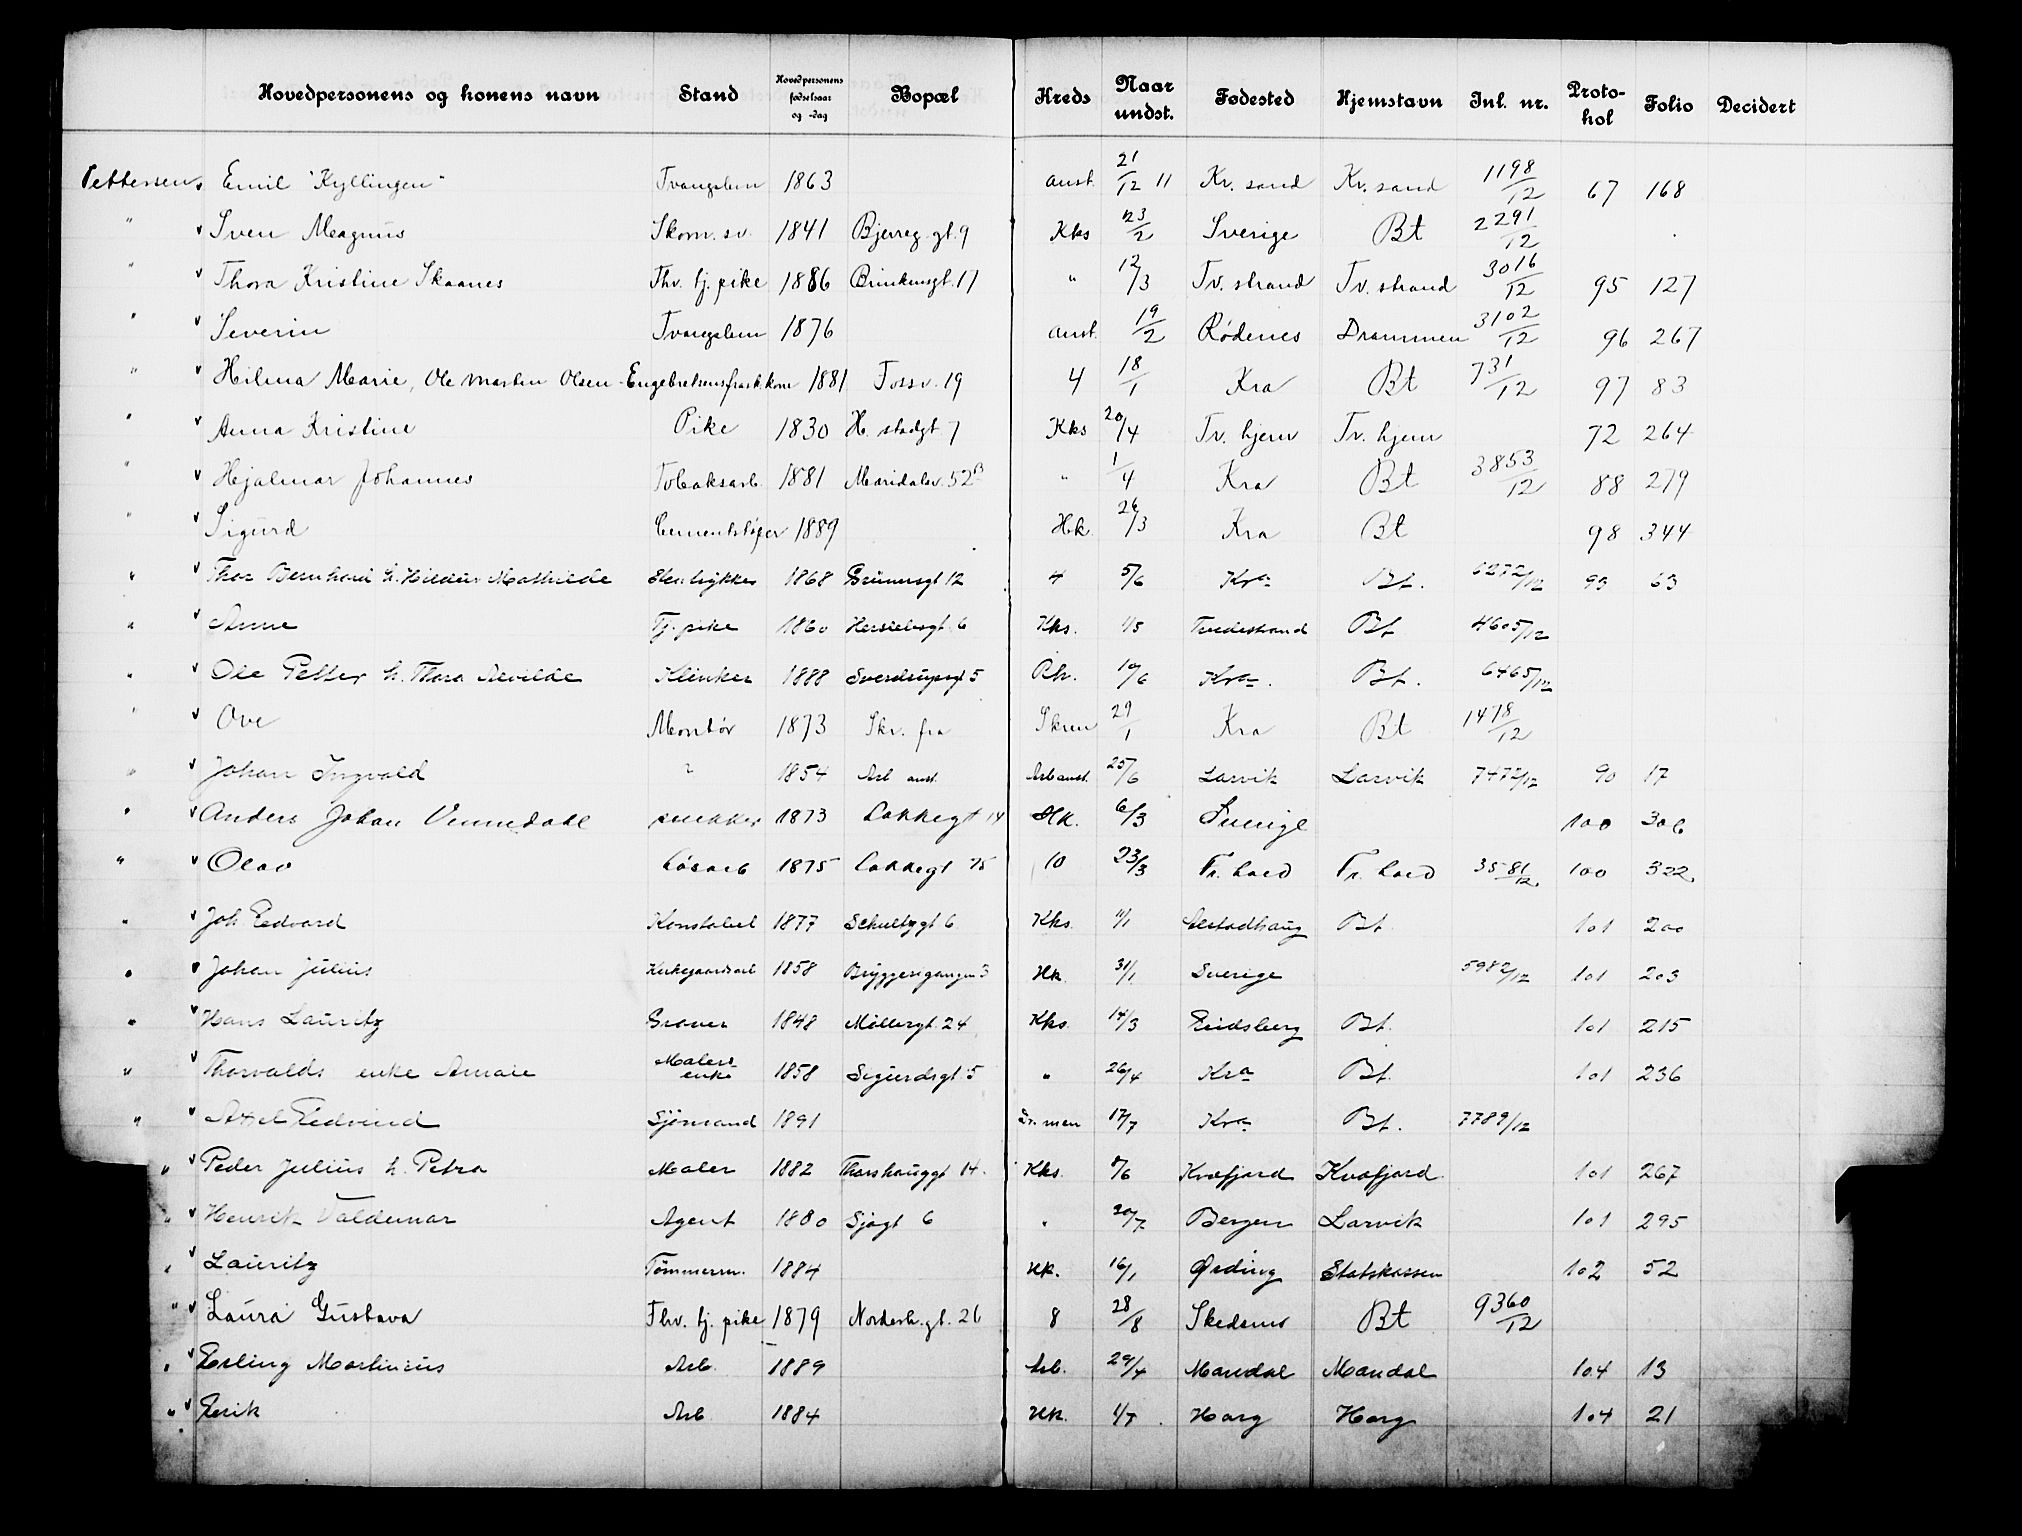 Hovedpersonens og konens navn Stand Hovedpersonens fødselsaar og -dag Bopæl Kreds Naar undst. Fødested Hjemstavn Inl. nr. Proto-kol Folio Decidert
Pettersen Emil "Kyllingen" Tvangslem 1863 Anst. 21/12 11 Kr. sand Kr. sand 1198/12 67 168
" Sven Magnus Skom. sv. 1841 Bjerreg. gt. 9 Kks 23/2 Sverige Bt 2291/12
" Thora Kristine Skaanes Fhv. tj. pike 1886 17 " 12/3 Tv. strand Tv. strand 3016/12 95 127
" Severin Tvangslem 1876 Anst. 19/2 Rødenes Drammen 3102/12 96 267
" Hilma Marie, Ole Martin Olsen Engebretsens frask. kone 1881 Fossv. 19 4 18/1 Kra Bt 731/12 97 83
" Anna Kristine Pike 1830 H. stadgt. 7 Kks 20/4 Tv. hjem Tv. hjem 72 264
" Hjalmar Johannes Tobaksarb. 1881 Maridalsv. 52B " 1/4 Kra Bt 3853/12 88 279
" Sigurd Cementstøper 1889 Hk. 26/3 Kra Bt 98 344
" Thor Bernhard h. Mathilde Stentrykker 1868 Brunnsgt 12 4 5/6 Kra Bt. 6272/12 93 63
" Anne Tj. pike 1860 Herslebsgt. 6 Kks. 1/5 Tvedestrand Bt. 4605/12
" Ole Petter h. Thora Alvilde Klinker 1888 Sverdrupsgt 5 Rk. 10/6 Kra. Bt. 6465/12
" Ove Montør 1873 Skr. fra Skien 29/1 Kra Bt 1478/12
" Johan Ingvald 1854 Arb anst. Arb anst. 25/6 Larvik Larvik 7472/12 90 17
" Anders Johan Vennedahl snekker 1873 Lakkegt 14 Hk. 6/3 Sverige 100 306
" Olav Løsarb 1875 Lakkegt 75 10 23/3 Fr. hald Fr. hald 3581/12 100 322
" Joh. Edvard Konstabel 1877 Schultzgt 6 Kks. 11/1 Alstadhaug Bt. 101 200
" Johan Julius Kirkegaardsarb 1858 Bryggerigangen 3 Hk. 31/1 Sverige 5982/12 101 203
" Hans Lauritz Graver 1848 Møllergt. 24 Kks. 14/3 Eidsberg Bt. 101 215
" Thorvalds enke Amalie Malers enke 1858 Sigurdsgt 5 " 26/4 Kra Bt. 101 236
" Axel Edvind Sjömand 1891 Dr. men 17/7 Kra Bt. 7789/12
" Peder Julius h. Petra Maler 1882 Thorshauggt 14. Kks. /6 Kvæfjord Kvæfjord 101 267
" Henrik Valdemar Agent 1880 Sjøgt 6 " 20/7 Bergen Larvik 101 295
" Lauritz Tömmerm. 1884 Hk. 16/1 Ørding Statskassen 102 52
" Laura Gustava Fhv. tj. pike 1879 Norderh. gt. 26 8 28/8 Skedsmo Bt 9360/12
" Erling Martinius Arb. 1889 Arb. 29/4 Mandal Mandal 104 13
" Erik Arb 1884 Hk. 1/7 Horg Horg 104 21